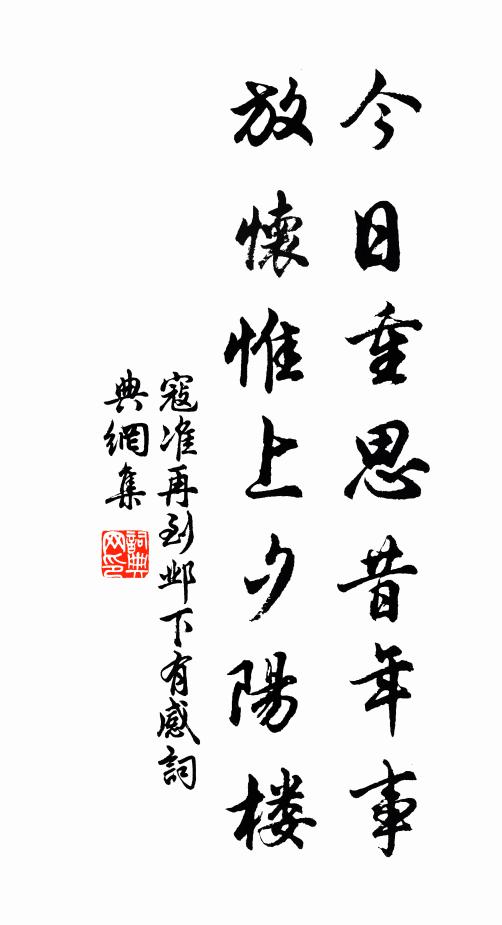 今日重思昔年事
放懷惟上夕陽楼
寇准再到邺下有感詞
典網集
詞典
网印